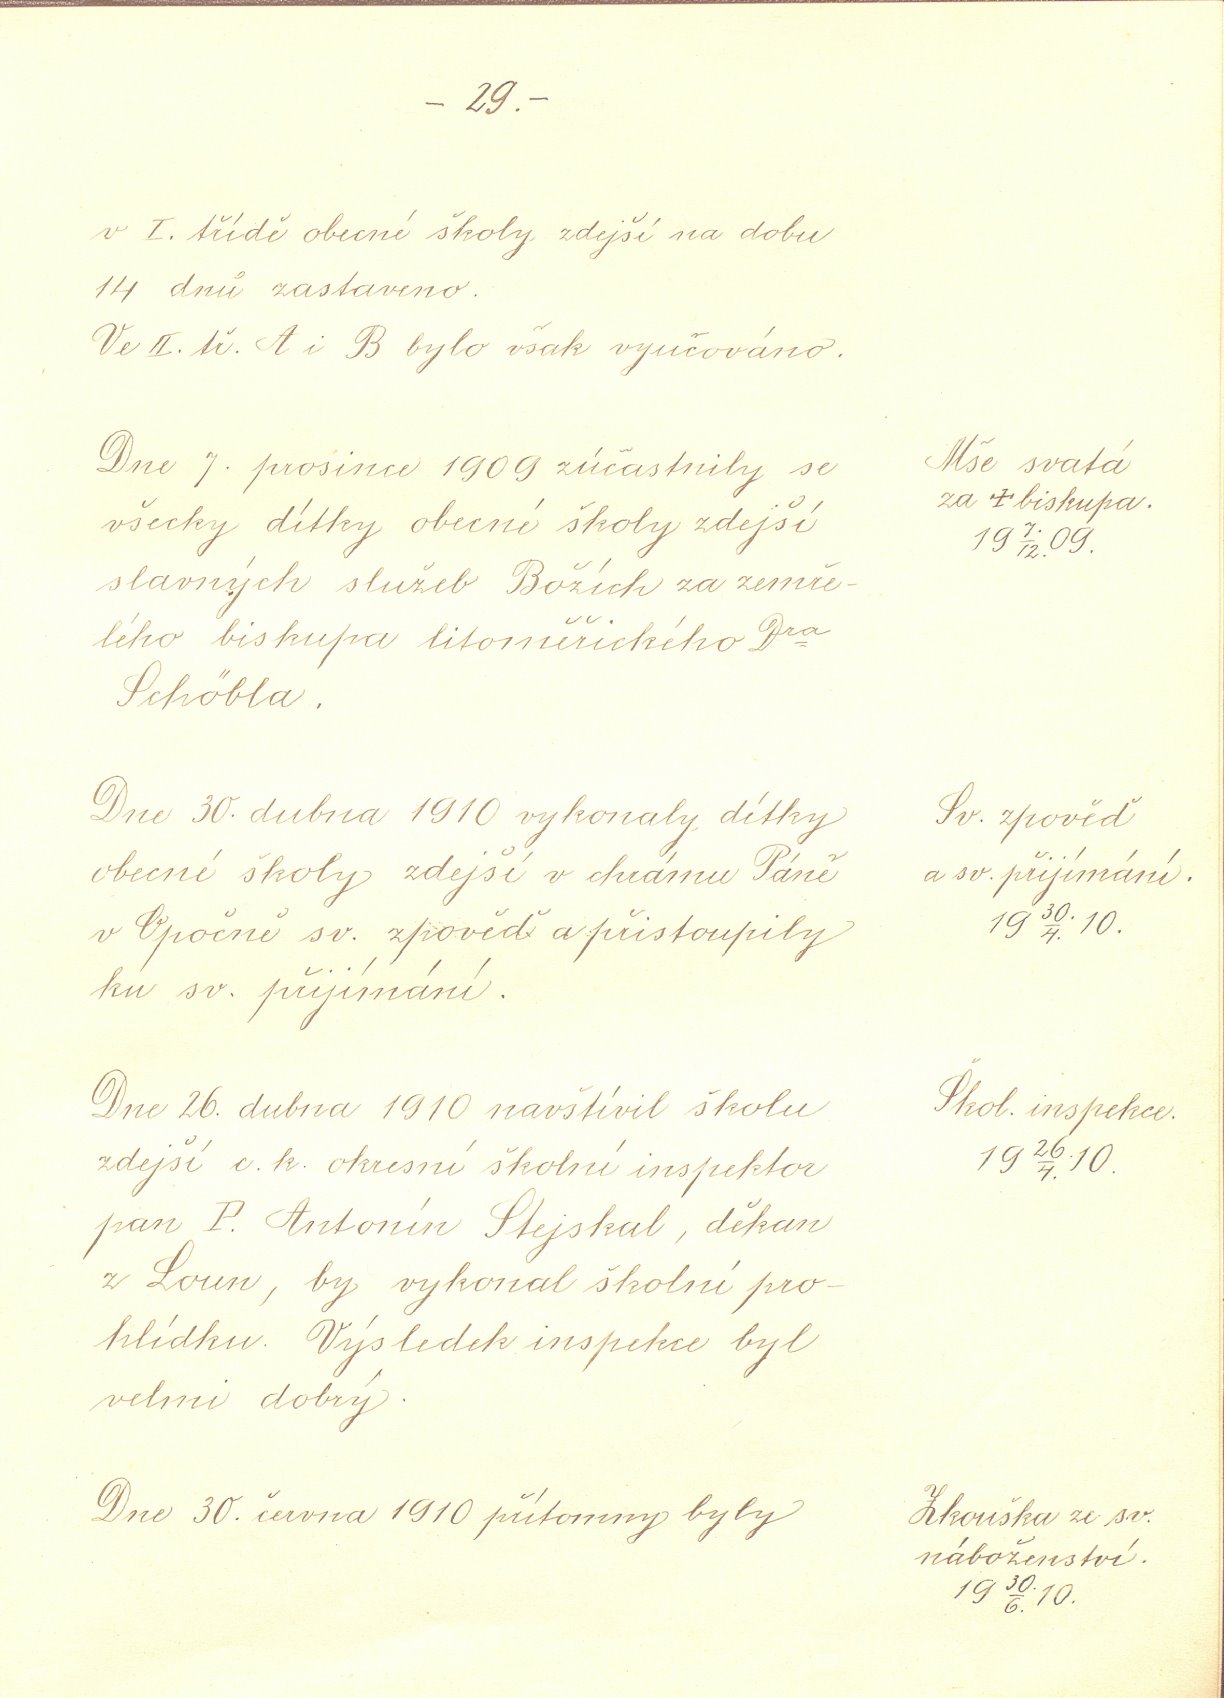 – 29. –
v I. třídě obecné školy zdejší na dobu
14 dnů zastaveno.
Ve II. tř. A i B bylo však vyučováno.
Dne 7. prosince 1909 zúčastnily se
všecky dítky obecné školy zdejší
slavných služeb Božích za zemře-
lého biskupa litoměřického Dra
Schöbla.
Mše svatá
za † biskupa.
19 7./12. 09.
Dne 30. dubna 1910 vykonaly dítky
obecné školy zdejší v chrámu Páně
v Opočně sv. zpověď a přistoupily
ku sv. přijímání.
Sv. zpověď
a sv. přijímání.
19 30./4. 10.
Dne 26. dubna 1910 navštívil školu
zdejší c. k. okresní školní inspektor
pan P. Antonín Stejskal, děkan
z Loun, by vykonal školní pro-
hlídku. Výsledek inspekce byl
velmi dobrý.
Škol. inspekce.
19 26./4. 10.
Dne 30. června 1910 přítomny byly
Zkouška ze sv.
náboženství.
19 30./6. 10.